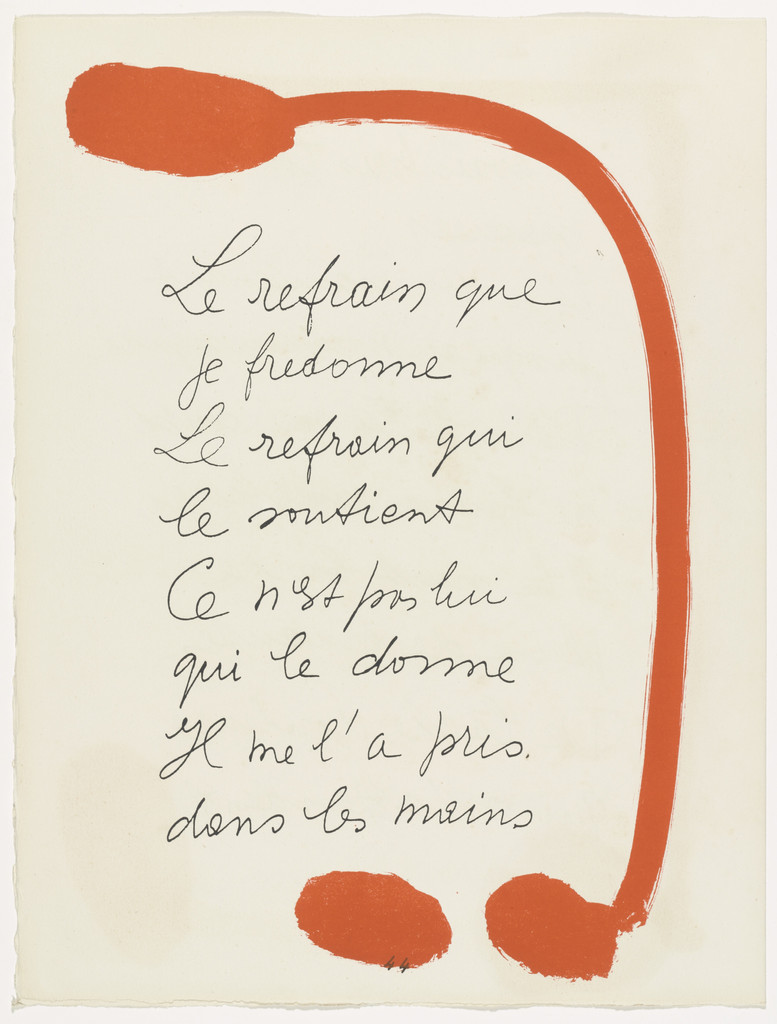 Le refrain que
je fredonne
Le refrain qui
le soutient
Ce n'est pas lui
qui le donne
Il me l'a pris.
dans les mains
44